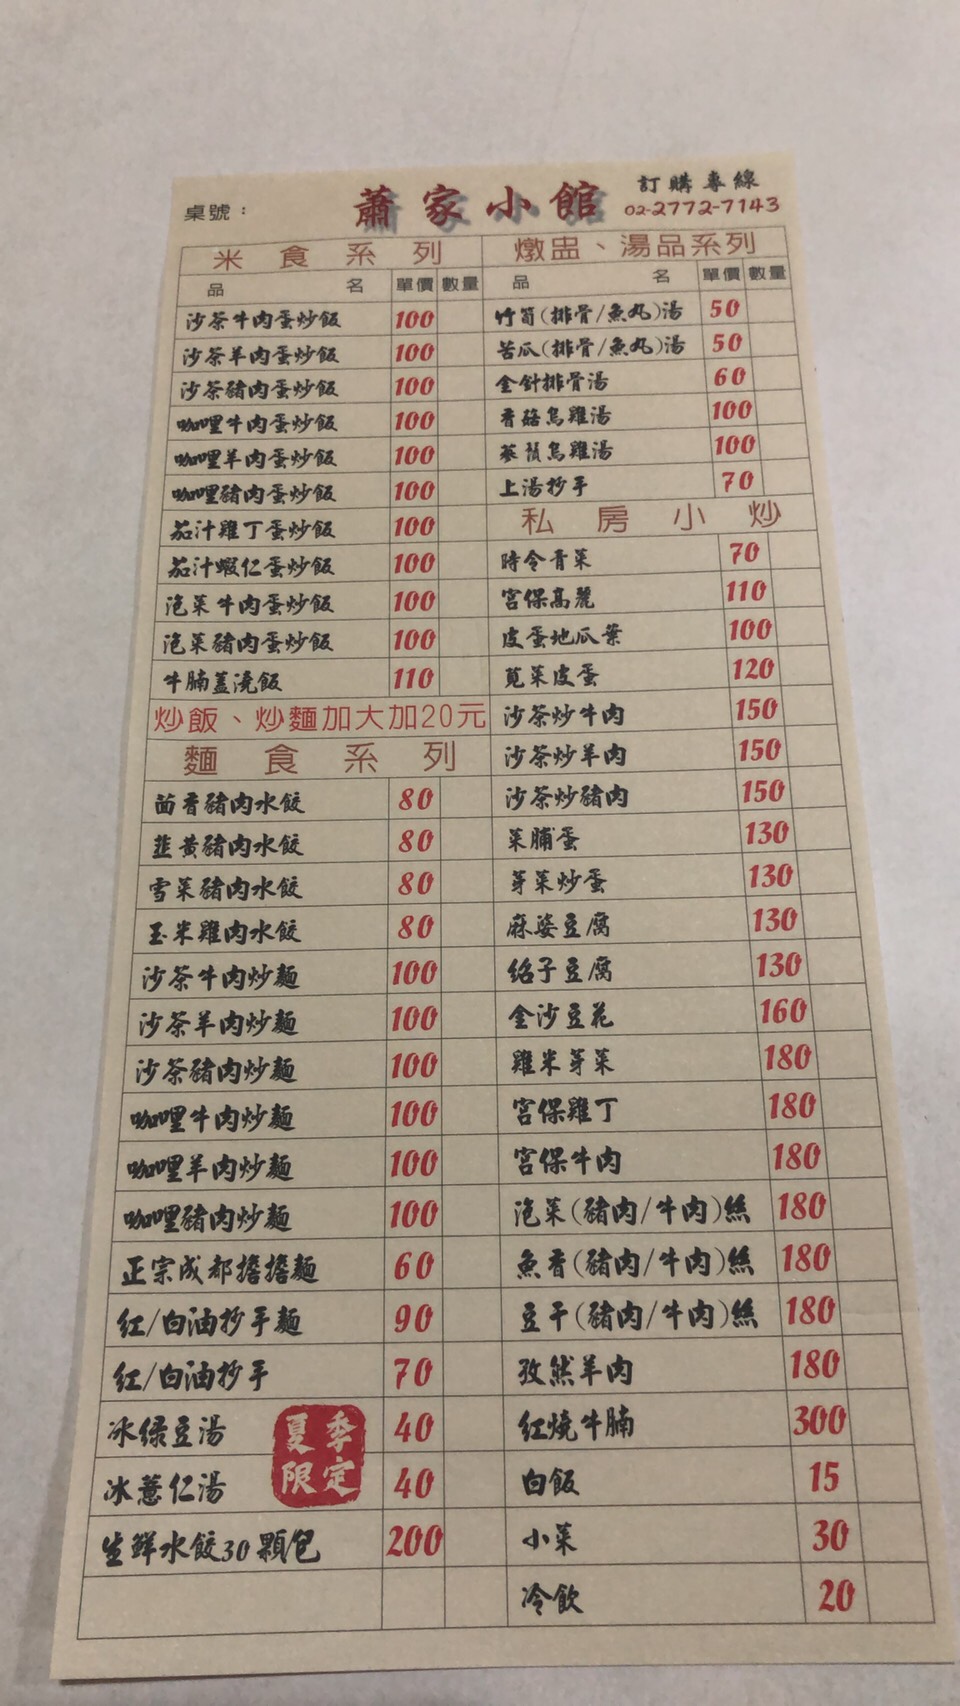 桌號：
蕭家小館
訂購專線
02-2772-7143
米食系列
品名 單價 數量
沙茶牛肉蛋炒飯 100
沙茶羊肉蛋炒飯 100
沙茶豬肉蛋炒飯 100
咖哩牛肉蛋炒飯 100
咖哩羊肉蛋炒飯 100
咖哩豬肉蛋炒飯 100
茄汁雞丁蛋炒飯 100
茄汁蝦仁蛋炒飯 100
泡菜牛肉蛋炒飯 100
泡菜豬肉蛋炒飯 100
牛腩蓋澆飯 110
炒飯、炒麵加大加20元
麵食系列
茴香豬肉水餃 80
韮黃豬肉水餃 80
雪菜豬肉水餃 80
玉米雞肉水餃 80
沙茶牛肉炒麵 100
沙茶羊肉炒麵 100
沙茶豬肉炒麵 100
咖哩牛肉炒麵 100
咖哩羊肉炒麵 100
咖哩豬肉炒麵 100
正宗成都擔擔麵 60
紅/白油抄手麵 90
紅/白油抄手 70
冰綠豆湯 40
冰薏仁湯 40
夏季
限定
生鮮水餃30顆包 200
燉盅、湯品系列
品名 單價 數量
竹筍(排骨/魚丸)湯 50
苦瓜(排骨/魚丸)湯 50
金針排骨湯 60
香菇烏雞湯 100
蔘鬚烏雞湯 100
上湯抄手 70
私房小炒
時令青菜 70
宮保高麗 110
皮蛋地瓜葉 100
莧菜皮蛋 120
沙茶炒牛肉 150
沙茶炒羊肉 150
沙茶炒豬肉 150
菜脯蛋 130
芽菜炒蛋 130
麻婆豆腐 130
紹子豆腐 130
金沙豆花 160
雞米芽菜 180
宮保雞丁 180
宮保牛肉 180
泡菜(豬肉/牛肉)絲 180
魚香(豬肉/牛肉)絲 180
豆干(豬肉/牛肉)絲 180
孜然羊肉 180
紅燒牛腩 300
白飯 15
小菜 30
冷飲 20